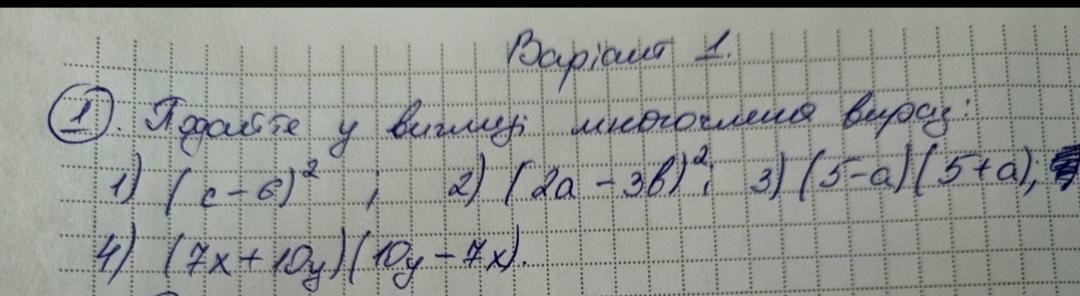 Варіант 1.
1. Подайте у вигляді многочлена вираз:
1) (c-6)²; 2) (2a-3b)²; 3) (5-a)(5+a);
4) (7x+10y)(10y-7x).